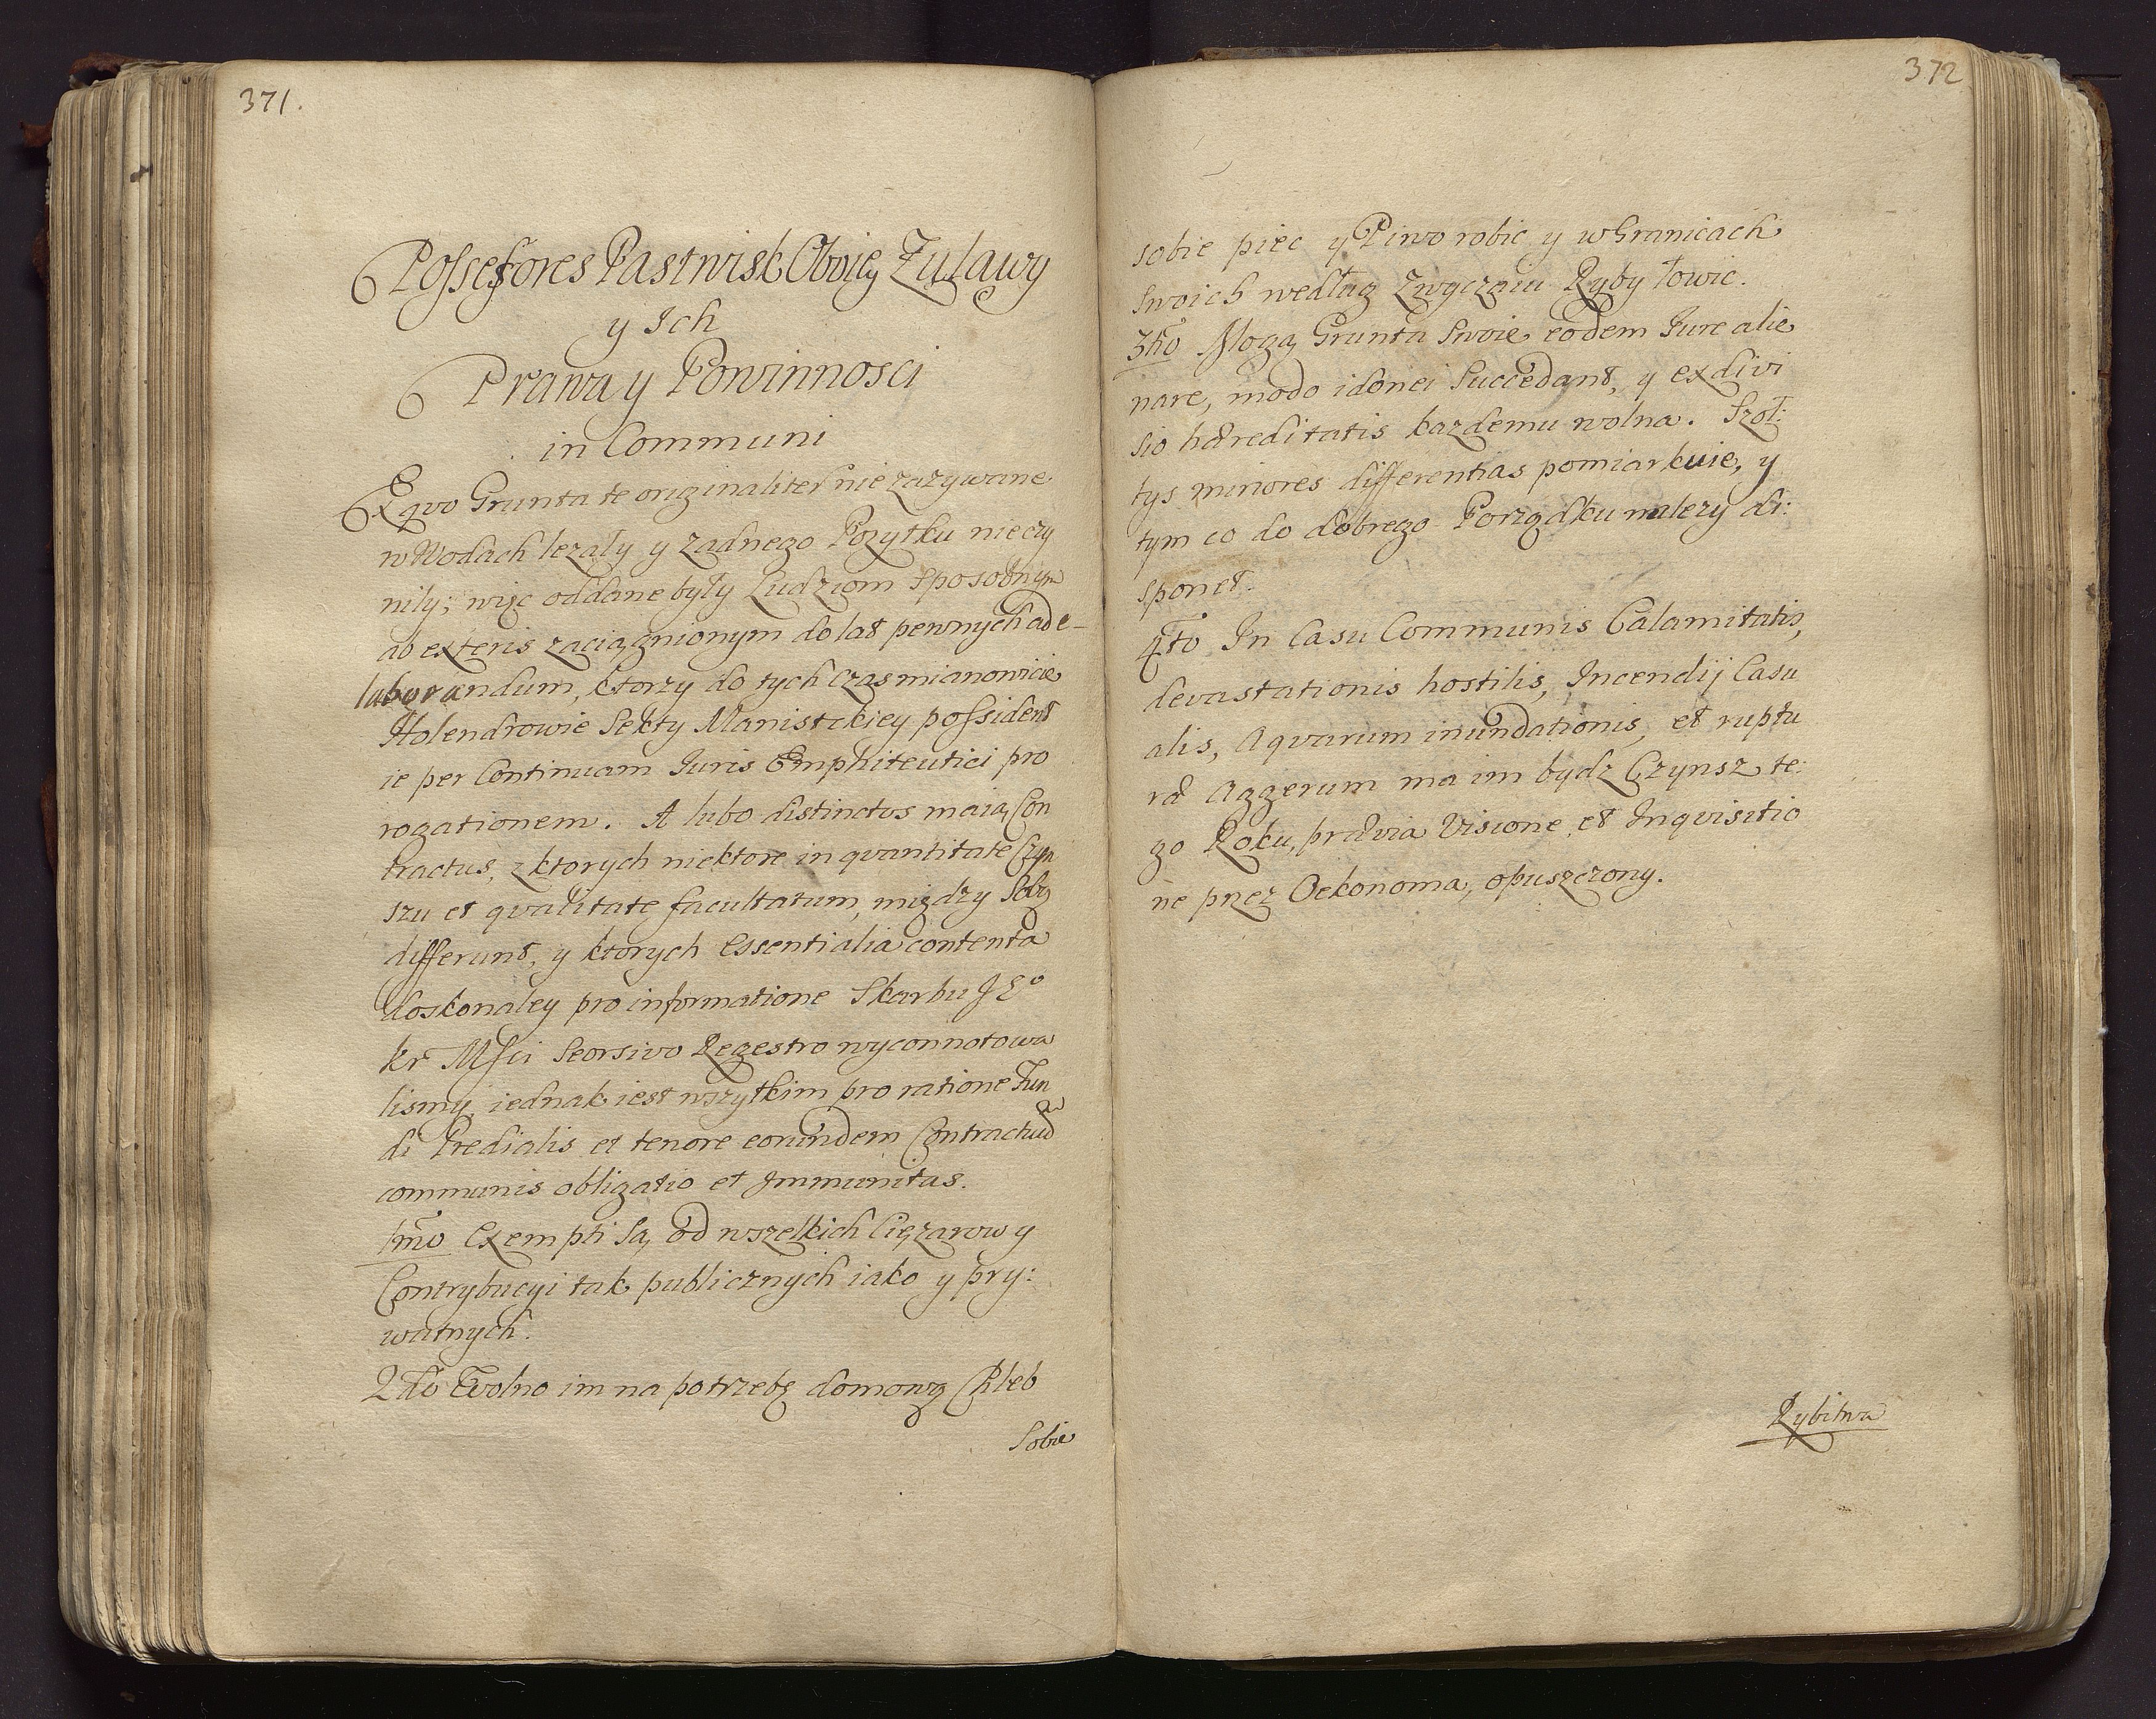 371.
Possessores Pastwisk Oboiey Zuławy
y Ich
Prawa y Powinnosci
in Communi
Eqvo Grunta te originaliter nie zazywane
w Wodach lezały y zadnego Pozytku nie czy
niły; więc oddane były Ludziom sposobnym
ab exteris zaciągnionym do lat pewnych ad e-
laborandum, ktorzy do tych czas mianowicie
Holendrowie Sekty Manistckiey possident
ie per Continuam Juris Emphiteutici pro
rogationem. A lubo distinctos maią Con
tractus, z ktorych niektore in qvantitate Czyn
szu et qvalitate facultatum, między sobą
differunt, y ktorych essentialia contenta
doskonaley pro informatione Skarbu JEo
Kr Msci Seorsivo Regestro wyconnotowa
lismy, iednak iest wszytkim pro ratione Fun
di Predialis et tenore eorundem Contractuum
communis obligatio et Immunitas.
1mo Exempti są od wszelkich Ciężarow y
Contrybucyi tak publicznych iako y pry:
watnych.
2do Wolno im na potrzebę domową Chleb
Sobie
372
sobie piec y Piwo robic y w Granicach
swoich według Zwyczaiu Ryby łowic.
3tio Mogą Grunta swoie eodem Jure alie
nare, modo idonei succedant, y ex divi
sio hæreditatis kazdemu wolna. Szoł:
tys minores differentias pomiarkuie, y
tym co do dobrego Porządku nalezy di:
sponet.
4to In Casu Communis Calamitatis,
devastationis hostilis, Incendij Casu
alis, Aqvarum inundationis, et ruptu
ræ Aggerum ma im bydz Czynsz te:
go Roku, prævia Visione et Inqvisitio
ne przez Oekonoma, opuszczony.
Rybitwa